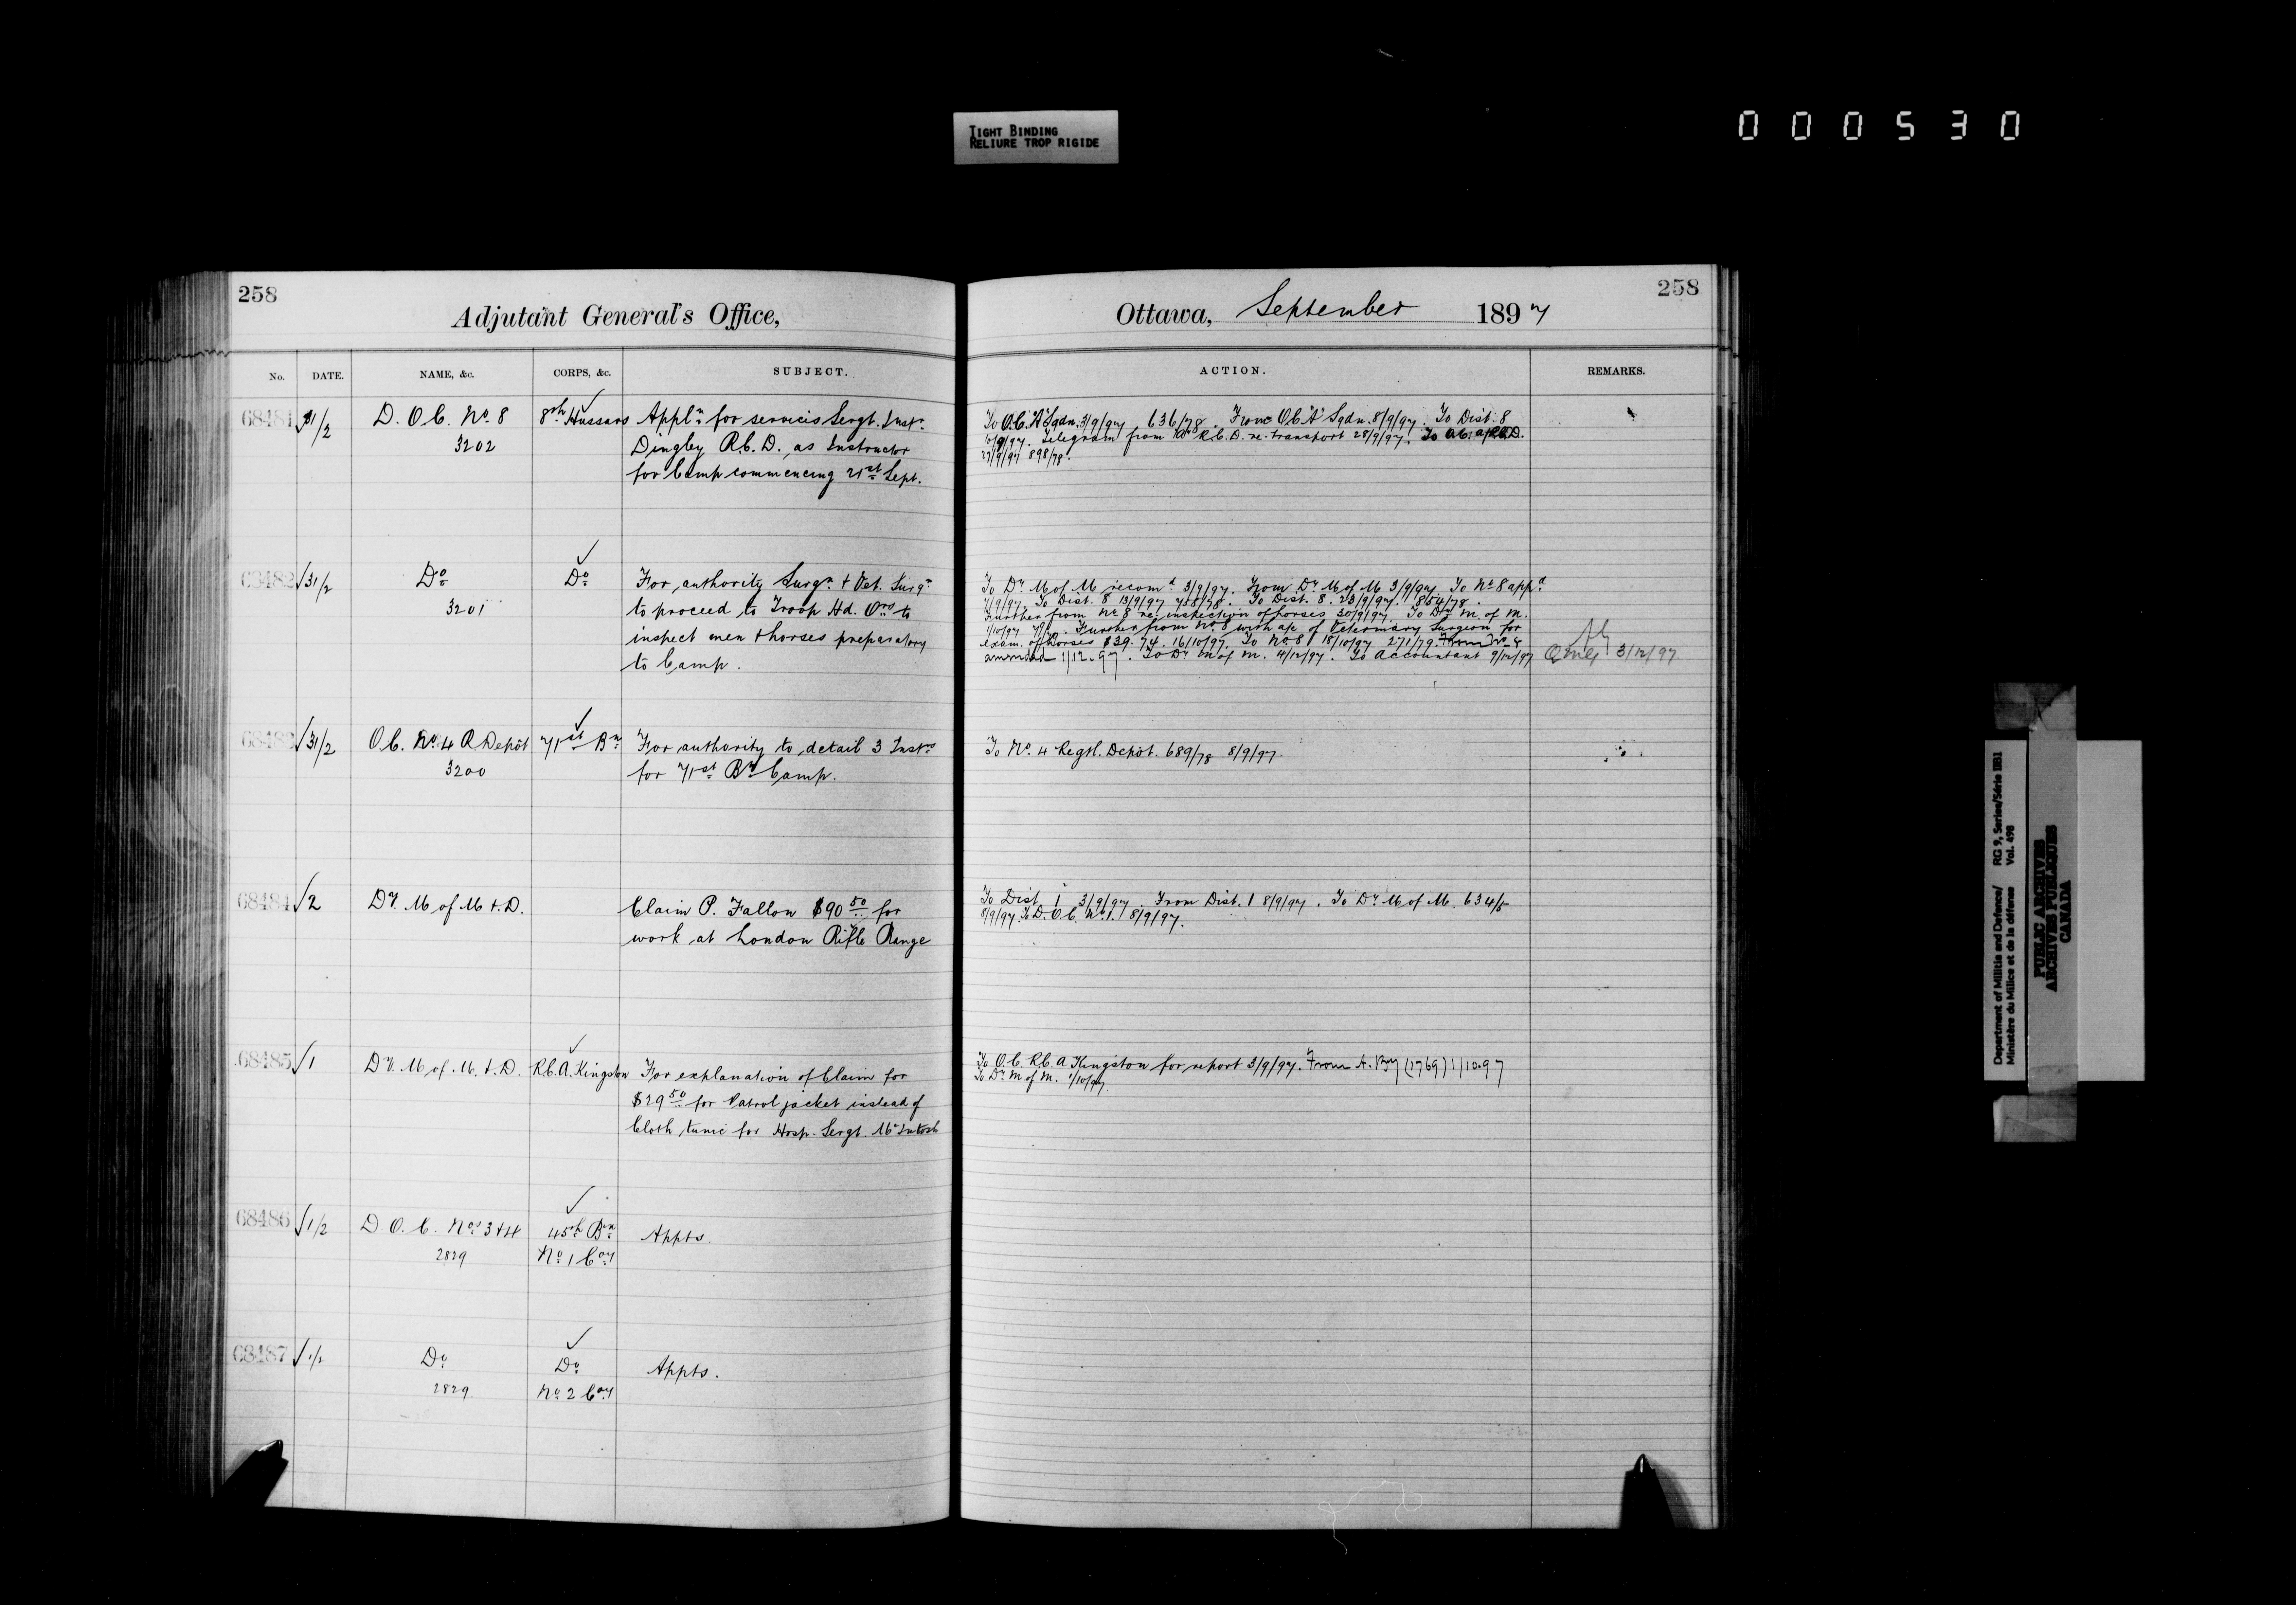 TIGHT BINDING
RELIURE TROP RIGIDE
000530
258
Adjutant General's Office,
Ottawa, September 1897
258
No. DATE. NAME, &c. CORPS, &c. SUBJECT. ACTION. REMARKS.
68481 31/2 D. O. C. No. 8 8th Hussars Appln. for services Sergt. Instr.
3202 Dingley R.C.D., as Instructor
for Camp commencing 21st Sept.
To O.C. "A" Sqdn. 3/9/97 636/78. From O.C. "A" Sqdn. 8/9/97. To Dist. 8
10/9/97. Telegram from R.C.D. re. transport 28/9/97.
27/9/97 898/78.
68482 31/2 Do Do For authority Surgn. & Vet. Surgn.
3201 to proceed to Troop Hd. Qrs to
inspect men & horses preparatory
to Camp.
To Dy. M of M recomd 3/9/97. From Dy. M of M 3/9/97. To No 8 appd
7/9/97. To Dist. 8 13/9/97 758/78. To Dist. 8. 23/9/97. 854/78.
Further from No 8 re inspection of horses 30/9/97. To Dy M. of M.
1/10/97. Further from No 8 with a/c of Veterinary Surgeon for
exam. of horses $39.74. 16/10/97. To No 8 18/10/97 271/79. From No 8
amended 1/12.97. To Dy M of M. 4/12/97. To Accountant 9/12/97
QMG 3/12/97
68483 31/2 O.C. No. 4 R Depôt 71st Bn. For authority to detail 3 Instrs
3200 for 71st Bn Camp.
To No. 4 Regtl. Depôt. 689/78 8/9/97.
68484 2 Dy. M of M & D. Claim P. Fallon $90.50 for
work at London Rifle Range
To Dist. 1 3/9/97. From Dist. 1 8/9/97. To Dy M of M. 634/5
8/9/97. To D.O.C. No. 1. 8/9/97.
68485 1 Dy. M of M. & D. R.C.A. Kingston For explanation of Claim for
$29.50 for Patrol jacket instead of
Cloth tunic for Hosp. Sergt. McIntosh
To O.C. R.C.A Kingston for report 3/9/97. From A. By (1769) 1/10.97
To Dy M of M. 1/10/97
68486 1/2 D. O. C. Nos 3 & 4 45th Bn. Appts.
2829 No 1 Coy
68487 1/2 Do Do Appts.
2829 No 2 Coy
Department of Militia and Defence/ RG 9, Series/Série IIB1
Ministère du Milice et de la défence Vol. 498
PUBLIC ARCHIVES
ARCHIVES PUBLIQUES
CANADA